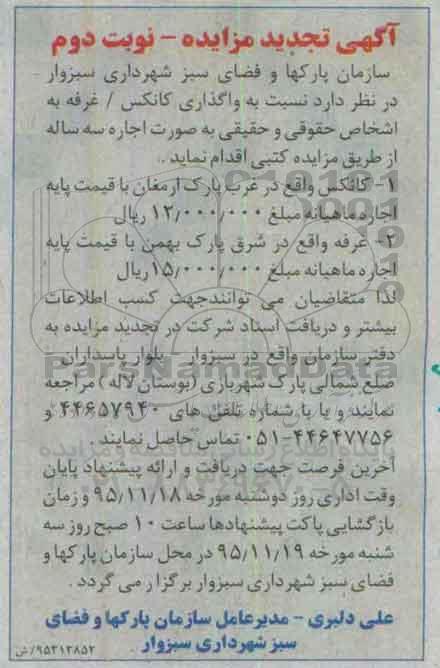 آگهی تجدید مزایده - نوبت دوم
سازمان پارکها و فضای سبز شهرداری سبزوار
در نظر دارد نسبت به واگذاری کانکس / غرفه به
اشخاص حقوقی و حقیقی به صورت اجاره سه ساله
از طریق مزایده کتبی اقدام نماید .
۱- کانکس واقع در غرب پارک ارمغان با قیمت پایه
اجاره ماهیانه مبلغ ۱۲/۰۰۰/۰۰۰ ریال
۲- غرفه واقع در شرق پارک بهمن با قیمت پایه
اجاره ماهیانه مبلغ ۱۵/۰۰۰/۰۰۰ ریال
لذا متقاضیان می توانند جهت کسب اطلاعات
بیشتر و دریافت اسناد شرکت در تجدید مزایده به
دفتر سازمان واقع در سبزوار - بلوار پاسداران -
ضلع شمالی پارک شهربازی (بوستان لاله ) مراجعه
نمایند و یا با شماره تلفن های ۴۴۶۵۷۹۴۰ و
۴۴۶۴۷۷۵۶-۰۵۱ تماس حاصل نمایند .
آخرین فرصت جهت دریافت و ارائه پیشنهاد پایان
وقت اداری روز دوشنبه مورخه ۹۵/۱۱/۱۸ و زمان
بازگشایی پاکت پیشنهادها ساعت ۱۰ صبح روز سه
شنبه مورخه ۹۵/۱۱/۱۹ در محل سازمان پارکها و
فضای سبز شهرداری سبزوار برگزار می گردد .
علی دلبری - مدیرعامل سازمان پارکها و فضای
سبز شهرداری سبزوار
۹۵۲۱۲۸۵۲/ش
ParsNamadData
پایگاه اطلاع رسانی مناقصه و مزایده